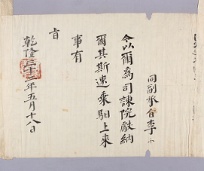 同副承旨李
今以爾爲司諫院獻納
爾其斯速乘馹上來
事有
旨
乾隆三十三年五月十八日